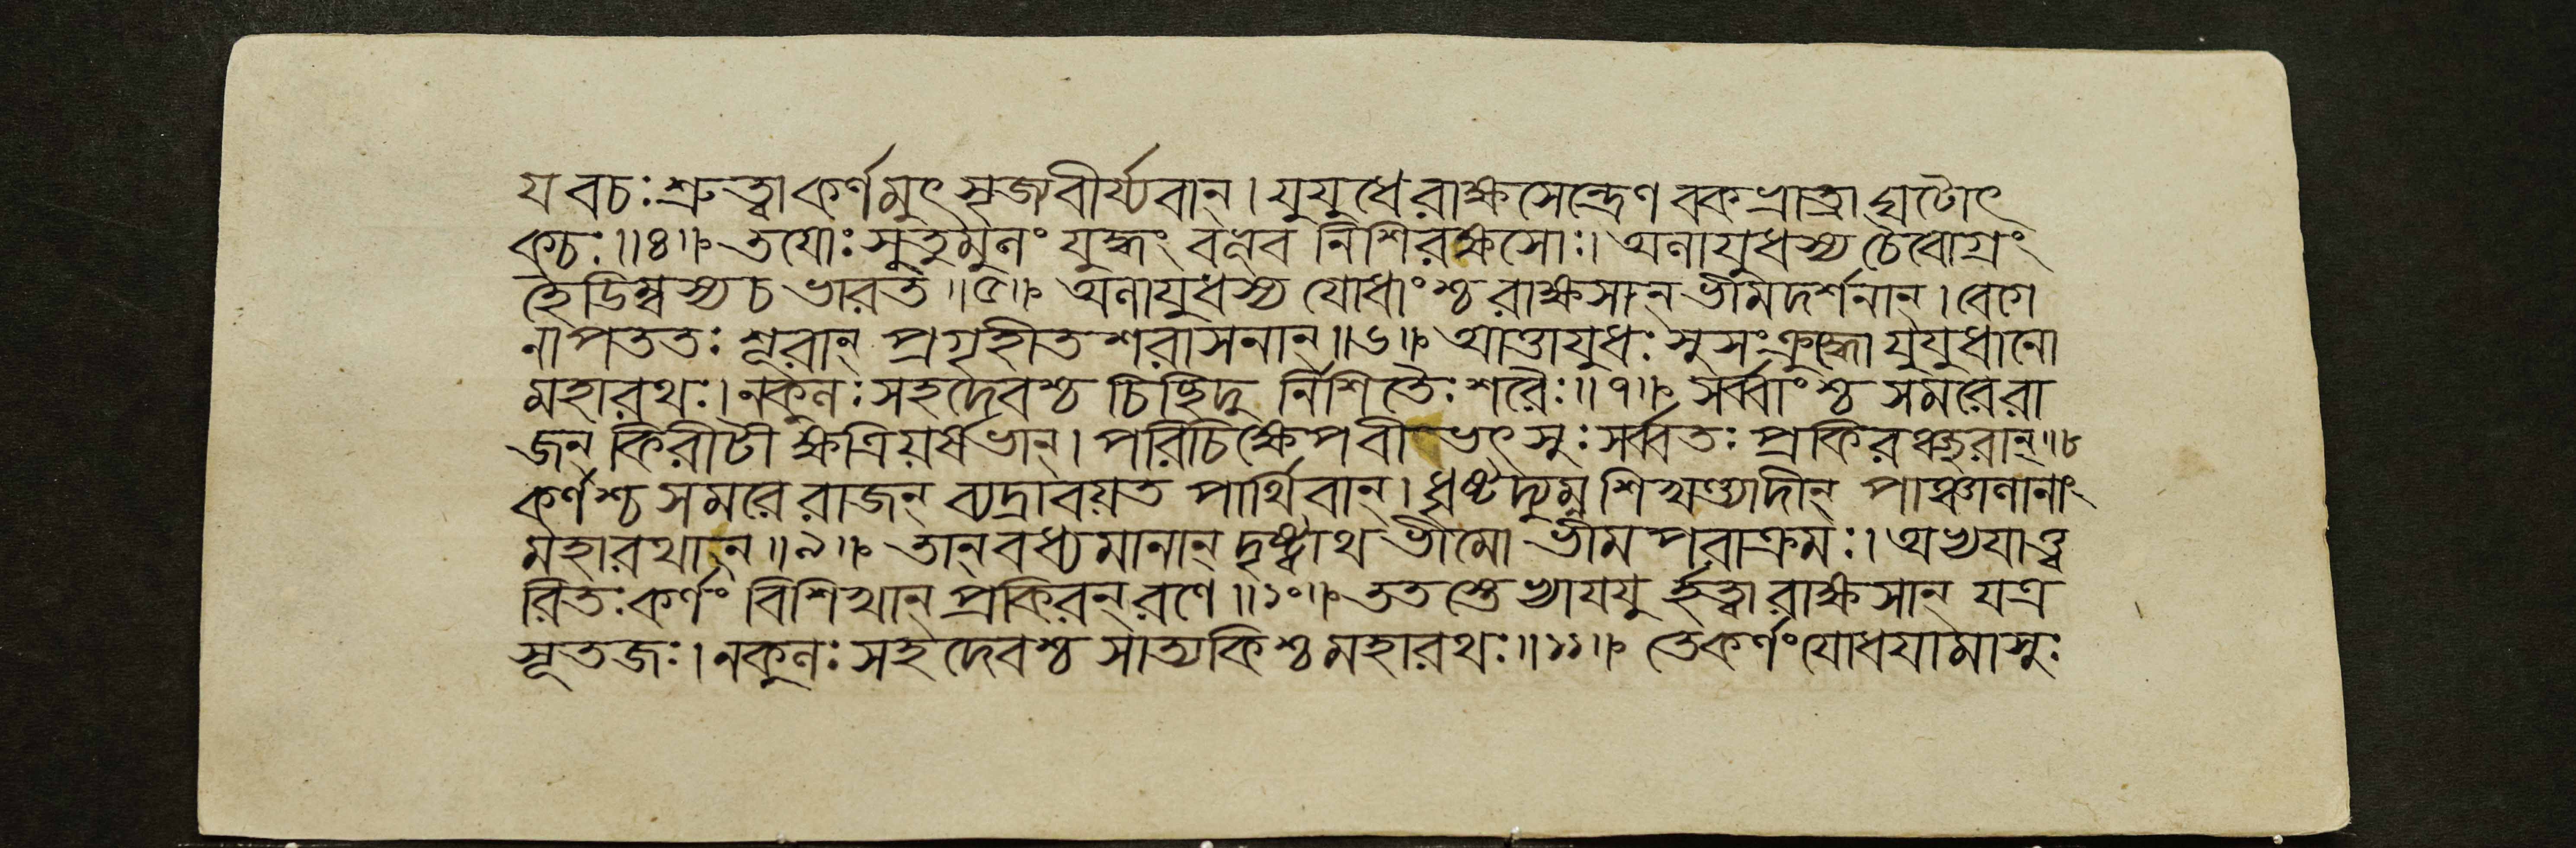 য বচঃ শ্রুত্বা কর্ণমুৎসৃজ্য বীর্য্যবান্। যুযুধে রাক্ষসেন্দ্রেণ বকভ্রাত্রা ঘটোৎ
কচঃ॥৪॥ তয়োঃ সুতুমুলং যুদ্ধং বভূব নিশি রক্ষসোঃ। অলায়ুধস্য চৈবোগ্রং
হৈডিম্বস্য চ ভারত॥৫॥ অলায়ুধস্য যোধাংশ্চ রাক্ষসান্ ভীমদর্শনান্। বেগে
নাপততঃ শূরান্ প্রগৃহীতশরাসনান্॥৬॥ আত্তায়ুধঃ সুসংক্রুদ্ধো যুযুধানো
মহারথঃ। নকুলঃ সহদেবশ্চ চিচ্ছিদু র্নিশিতৈঃ শরৈঃ॥৭॥ সর্ব্বাংশ্চ সমরে রা
জন্ কিরীটী ক্ষত্রিয়র্ষভান্। পরিচিক্ষেপ বীভৎসুঃ সর্ব্বতঃ প্রকিরঞ্ছরান্॥৮
কর্ণশ্চ সমরে রাজন্ ব্যদ্রাবয়ত পার্থিবান্। ধৃষ্টদ্যুম্ন শিখণ্ড্যাদীন্ পাঞ্চালানাং
মহারথান্॥৯॥ তান্ বধ্যমানান্ দৃষ্ট্বাথ ভীমো ভীমপরাক্রমঃ। অভ্যয়াত্ত্ব
রিতঃ কর্ণং বিশিখান্ প্রকিরন্ রণে॥১০॥ ততস্তেঽভ্যাযযু র্হত্বা রাক্ষসান্ যত্র
সূতজঃ। নকুলঃ সহদেবশ্চ সাত্যকিশ্চ মহারথঃ॥১১॥ তে কর্ণং যোধয়ামাসুঃ